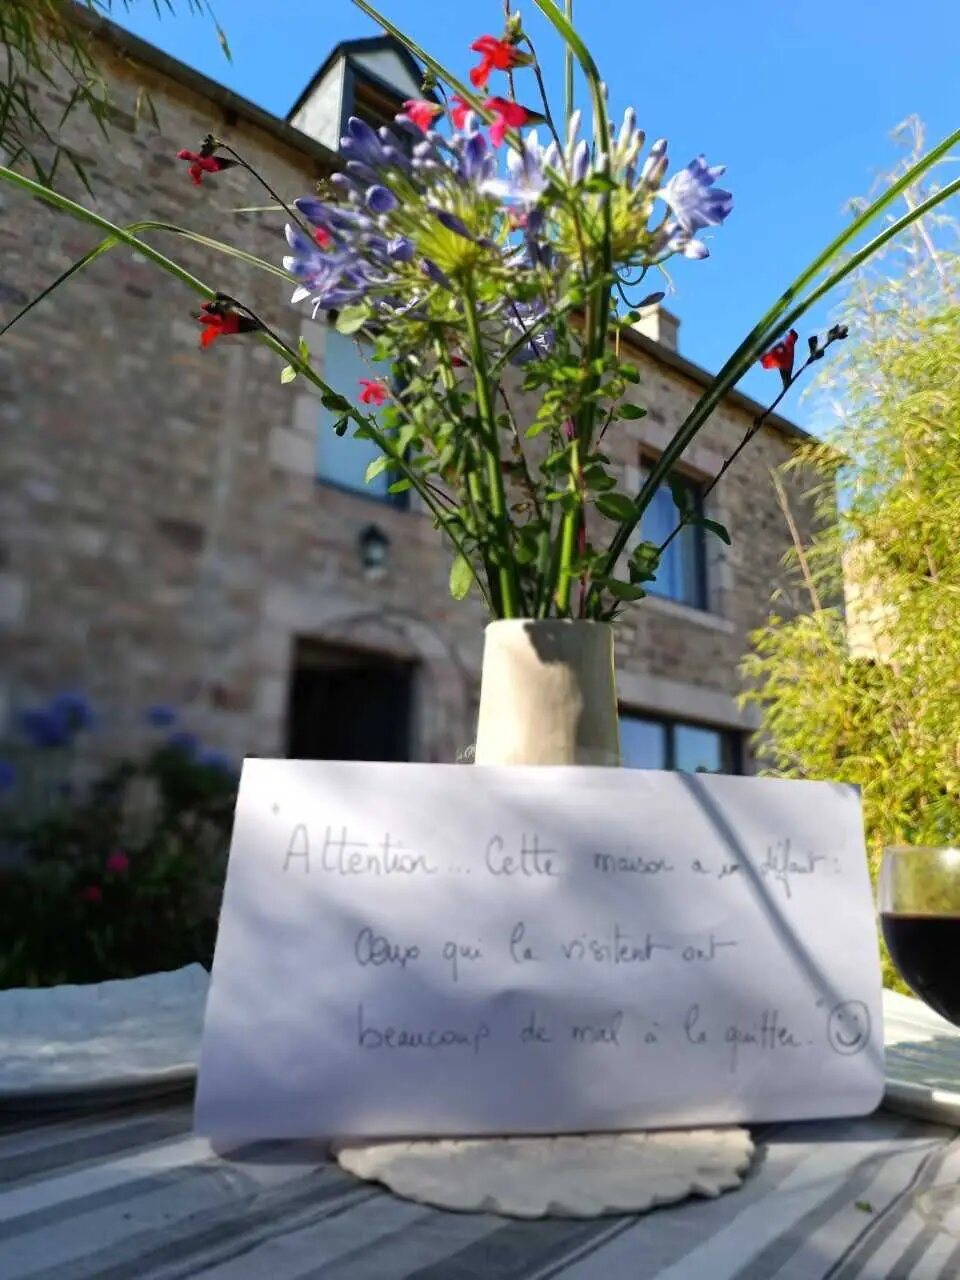 "Attention... Cette maison a un défaut :
Ceux qui la visitent ont
beaucoup de mal à la quitter."